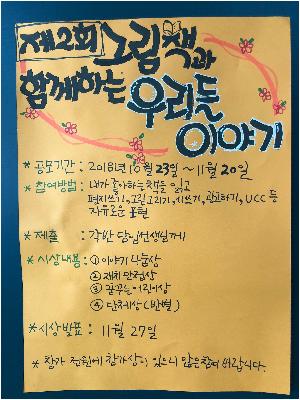 제2회 그림책과
함께하는 우리들
이야기
* 공모기간 : 2018년 10월 23일 ~ 11월 20일
* 참여방법 : 내가 좋아하는 책을 읽고
편지쓰기, 그림그리기, 시쓰기, 광고하기, UCC 등
자유로운 표현
* 제출 : 각반 담임선생님께
* 시상내용 : ① 이야기 나눔상
② 재치 만점상
③ 꿈꾸는 어린이상
④ 단체상 (반별)
* 시상발표 : 11월 27일
* 참가 전원에 참가상이 있으니 많은 참여 바랍니다.